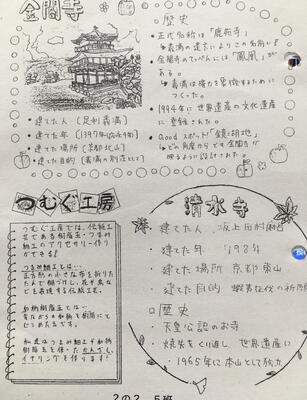 金閣寺
・建てた人(足利義満)
・建てた年(1397年
・建てた場所(京都北山)
・建てた目的(義満の別荘として)
歴史
・正式名称は「鹿苑寺」
→義満の遺言によりこの名前に
・金閣寺のてっぺんには「鳳凰」が
ある。
→義満は権力を象徴するために
つくった。
・1994年に世界遺産の文化遺産
に登録された。
・Good スポット!「鏡湖池」
→どの角度からでも金閣寺が
映るように設計された
つむぐ工房
つむぐ工房では、伝統工
芸である樹脂玉・つまみ
細工のアクセサリー作り
ができる!
つまみ細工とは…
正方形の小さな布を折りた
たんで糊づけし、花や鳥な
どを表現する伝統工芸。
和柄樹脂玉とは…
昔ながらの和柄を樹脂にと
じこめた玉です。
私達はつまみ細工や和柄
樹脂玉を使ったかんざし、
イヤリングを作ります!
清水寺
・建てた人 坂上田村麻呂
・建てた年
・建てた場所 京都東山
・建てた目的
□歴史
・天皇公認のお寺
・焼失をくり返し 世界遺産に
・1965年に本山として独立
2の2 5班